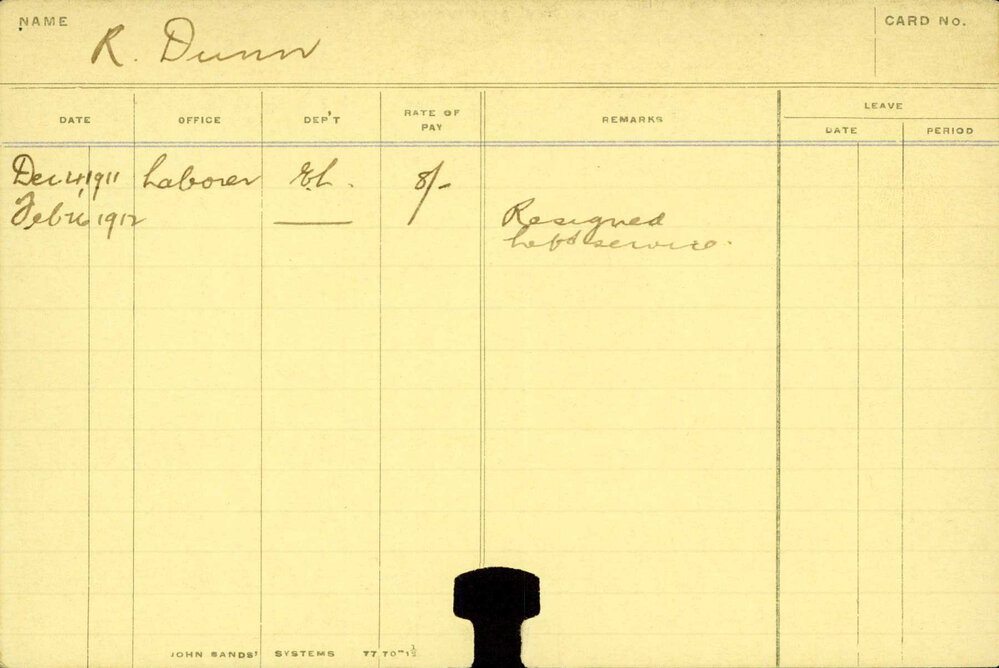 NAME R. Dunn CARD No.
DATE OFFICE DEP'T RATE OF PAY REMARKS LEAVE
DATE PERIOD
Dec 4, 1911 Laborer E.L. 8/-
Feb 16 1912 —— Resigned
Left service.
JOHN SANDS' SYSTEMS 77.70